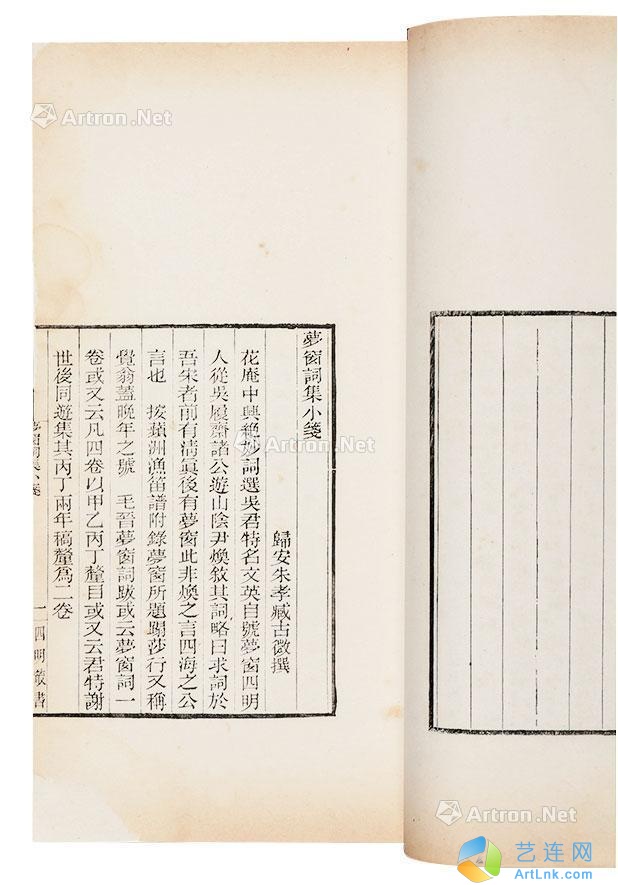 夢窗詞集小箋
歸安朱孝臧古微撰
花庵中興絶妙詞選吳君特名文英自號夢窗四明
人從吳履齋諸公遊山陰尹煥敘其詞略曰求詞於
吾宋者前有清眞後有夢窗此非煥之言四海之公
言也　按蘋洲漁笛譜附錄夢窗所題踢莎行又稱
覺翁蓋晚年之號　毛晉夢窗詞跋或云夢窗詞一
卷或又云凡四卷以甲乙丙丁釐目或又云君特謝
世後同遊集其丙丁兩年稿釐爲二卷
夢窗詞集小箋
一
四明叢書
Artron.Net
Artron.Net
Artron.Net
Artron.Net
艺连网
ArtLnk.com